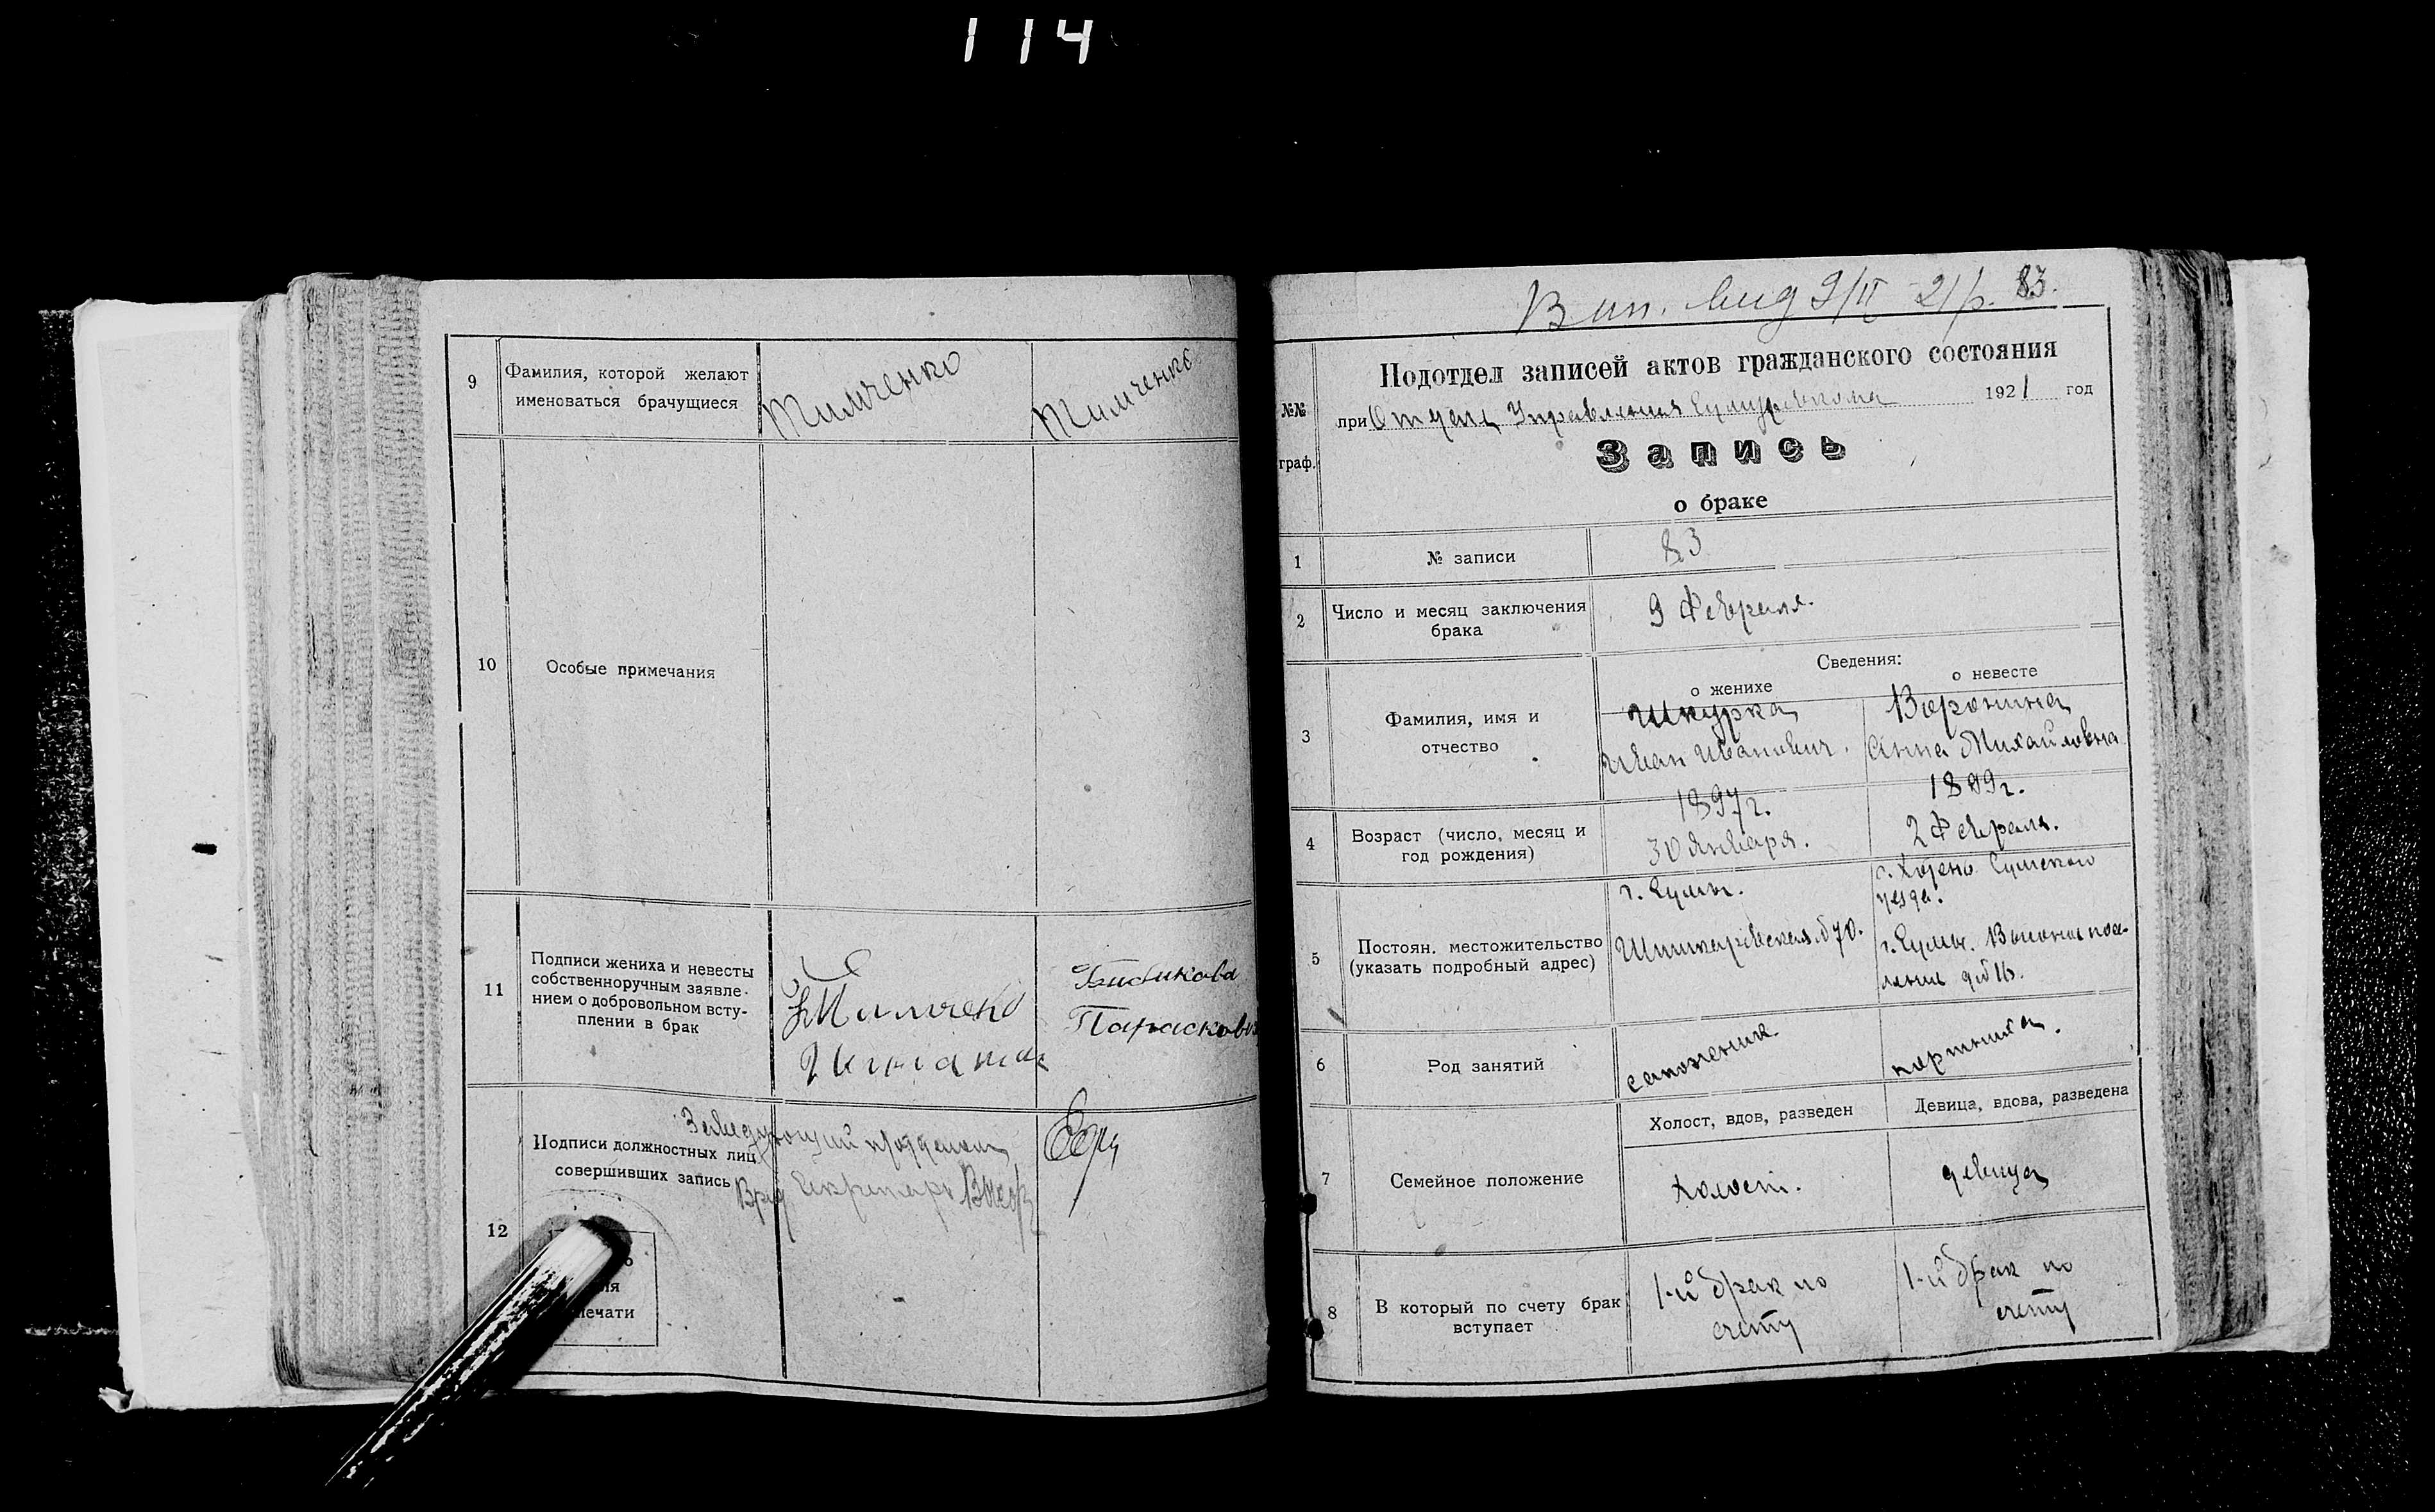 114
9
Фамилия, которой желают
именоваться брачущиеся
Тимченко
Тимченко
10
Особые примечания
11
Подписи жениха и невесты
собственноручным заявле-
нием о добровольном всту-
плении в брак
Тимченко
Игнат
Бибикова
Парасковия
12
Подписи должностных лиц
совершивших запись
Заведующий подотделом
Врид Секретаря
печати
Вип. вид 9/II 21 р. 83.
№№
граф.
Подотдел записей актов гражданского состояния
при Отделе Управления 1921 год
Запись
о браке
1
№ записи
83
2
Число и месяц заключения
брака
9 Февраля.
Сведения:
о женихе
о невесте
3
Фамилия, имя и
отчество
Шкурка
Иван Иванович.
Воронина
Анна Михайловна
4
Возраст (число, месяц и
год рождения)
1897 г.
30 Января.
1899 г.
2 Февраля.
5
Постоян. местожительство
(указать подробный адрес)
г. Сумы.
70.
с. Сумского
уезда.
г. Сумы.
6
Род занятий
сапожник
портниха.
7
Семейное положение
Холост, вдов, разведен
Девица, вдова, разведена
холост.
девица
8
В который по счету брак
вступает
1-й брак по
счету
1-й брак по
счету